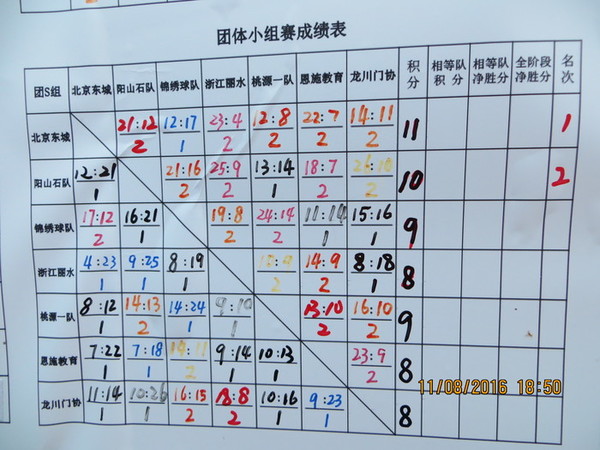 团体小组赛成绩表
团S组 北京东城 阳山石队 锦绣球队 浙江丽水 桃源一队 恩施教育 龙川门协 积分 相等队积分 相等队净胜分 全阶段净胜分 名次
北京东城 21:12 2 12:17 1 23:4 2 12:8 2 22:7 2 14:11 2 11 1
阳山石队 12:21 1 21:16 2 25:9 2 13:14 1 18:7 2 26:10 2 10 2
锦绣球队 17:12 2 16:21 1 19:8 2 24:14 2 11:14 1 15:16 1 9
浙江丽水 4:23 1 9:25 1 8:19 1 2 14:9 2 8:18 1 8
桃源一队 8:12 1 14:13 2 14:24 1 9:10 1 13:10 2 16:10 2 9
恩施教育 7:22 1 7:18 1 14:11 2 9:14 1 10:13 1 23:9 2 8
龙川门协 11:14 1 10:26 1 16:15 2 18:8 2 10:16 1 9:23 1 8
11/08/2016 18:50